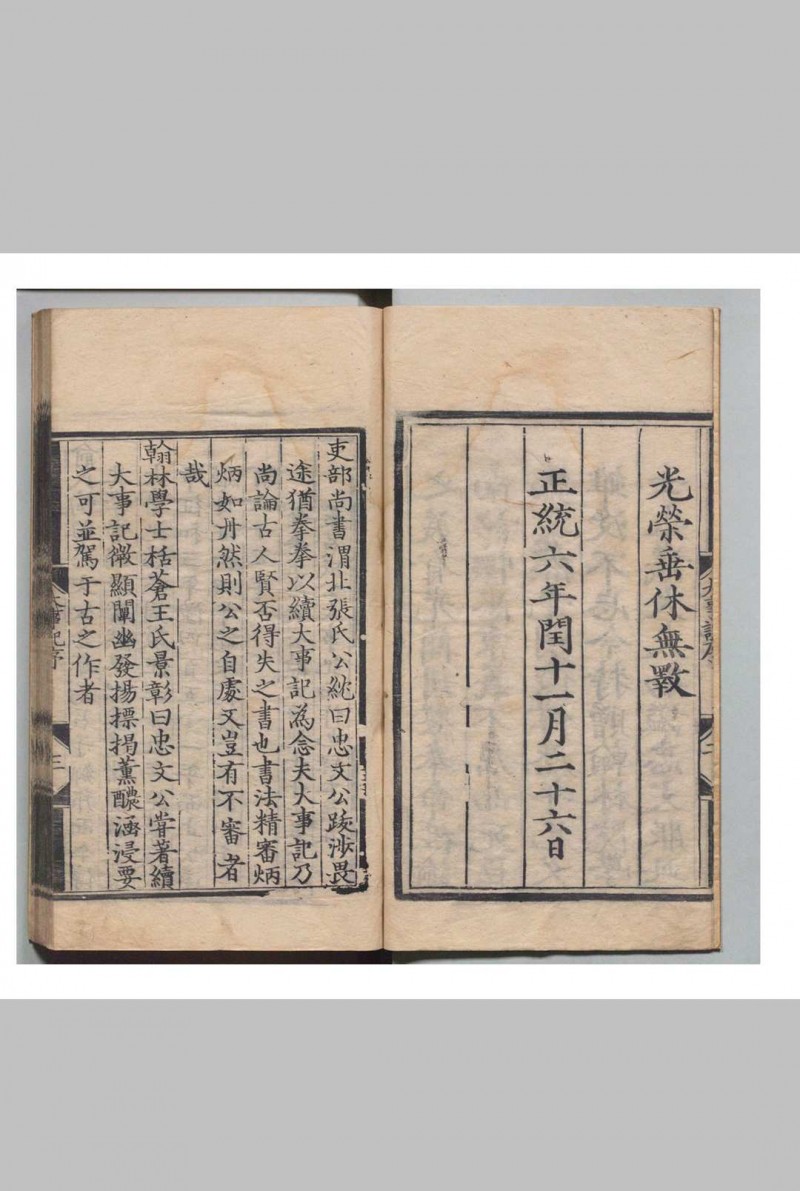 光榮垂休無斁
正統六年閏十一月二十六日
吏部尚書渭北張氏公紞曰忠文公跋涉畏
途猶拳拳以續大事記為念夫大事記乃
尚論古人賢否得失之書也書法精審炳
炳如丹然則公之自處又豈有不審者
哉
翰林學士栝蒼王氏景彰曰忠文公甞著續
大事記微顯闡幽發揚摽掲薫醲涵浸要
之可並駕于古之作者
大事記序
三